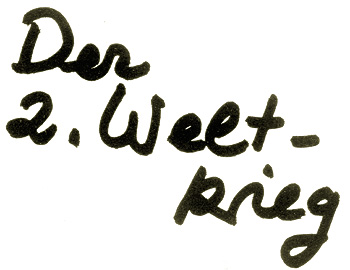 Der
2. Welt-
krieg